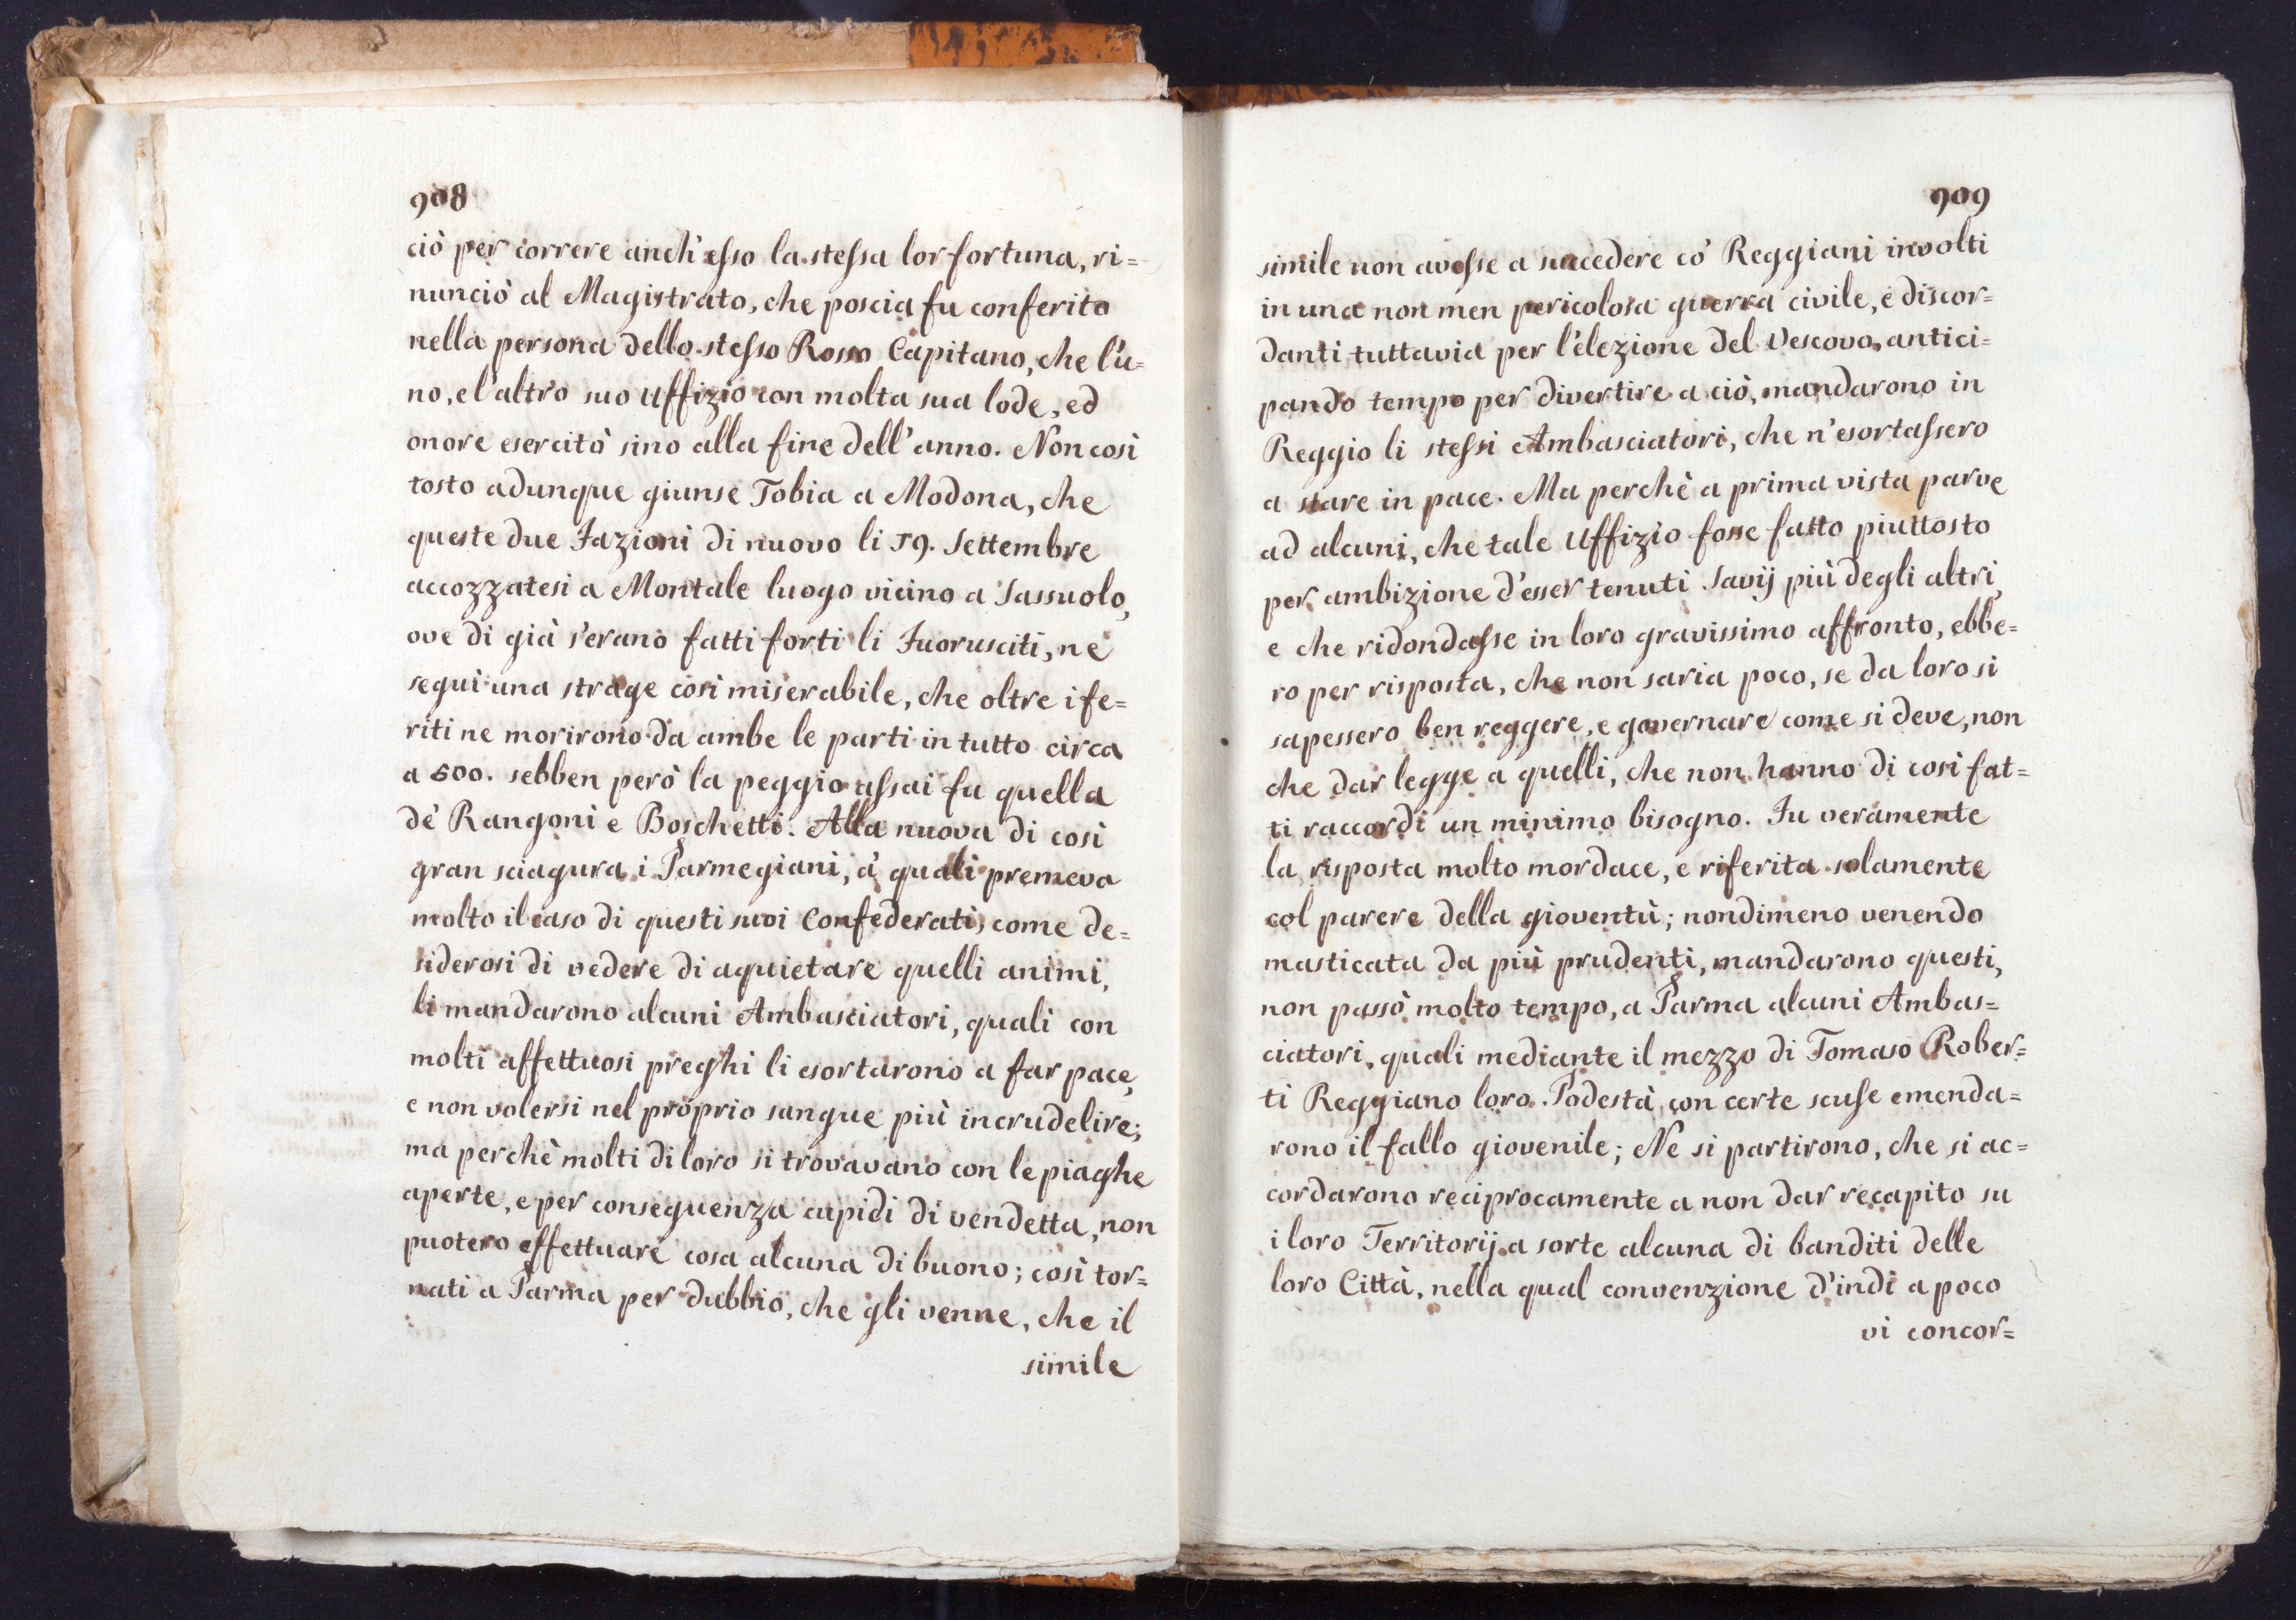 908
ciò per correre anch'esso la stessa lor fortuna, ri=
nunciò al Magistrato, che poscia fu conferito
nella persona dello stesso Rosso Capitano, che l'u=
no, e l'altro suo Uffizio con molta sua lode, ed
onore esercitò sino alla fine dell'anno. Non così
tosto adunque giunse Tobia a Modona, che
queste due Fazioni di nuovo li 19. Settembre
accozzatesi a Montale luogo vicino a Sassuolo,
ove di già s'erano fatti forti li Fuorusciti, ne
seguì una strage così miserabile, che oltre i fe=
riti ne morirono da ambe le parti in tutto circa
a 500. sebben però la peggio assai fu quella
de' Rangoni e Boschetti. Alla nuova di così
gran sciagura i Parmegiani, a' quali premeva
molto il caso di questi suoi Confederati, come de=
siderosi di vedere di aquietare quelli animi,
li mandarono alcuni Ambasciatori, quali con
molti affettuosi preghi li esortarono a far pace,
e non volersi nel proprio sangue più incrudelire;
ma perchè molti di loro si trovavano con le piaghe
aperte, e per conseguenza cupidi di vendetta, non
puotero effettuare cosa alcuna di buono; così tor=
nati a Parma per dubbio, che gli venne, che il
simile
909
simile non avesse a succedere co' Reggiani involti
in una non men pericolosa guerra civile, e discor=
danti tuttavia per l'elezione del Vescovo, antici=
pando tempo per divertire a ciò, mandarono in
Reggio li stessi Ambasciatori, che n'esortassero
a stare in pace. Ma perchè a prima vista parve
ad alcuni, che tale Uffizio fosse fatto piuttosto
per ambizione d'esser tenuti Savij più degli altri,
e che ridondasse in loro gravissimo affronto, ebbe=
ro per risposta, che non saria poco, se da loro si
sapessero ben reggere, e governare come si deve, non
che dar legge a quelli, che non hanno di così fat=
ti raccordi un minimo bisogno. Fu veramente
la risposta molto mordace, e riferita solamente
col parere della gioventù; nondimeno venendo
masticata da più prudenti, mandarono questi,
non passò molto tempo, a Parma alcuni Ambas=
ciatori, quali mediante il mezzo di Tomaso Rober=
ti Reggiano loro Podestà con certe scuse emenda=
rono il fallo giovenile; Ne si partirono, che si ac=
cordarono reciprocamente a non dar recapito su
i loro Territorij a sorte alcuna di banditi delle
loro Città, nella qual convenzione d'indi a poco
vi concor=